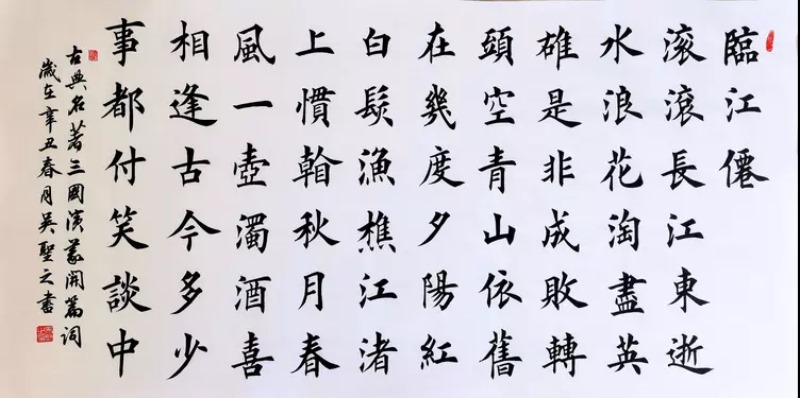 臨江僊
滚滾長江東逝
水浪花淘盡英
雄是非成敗轉
頭空青山依舊
在幾度夕陽紅
白髮漁樵江渚
上慣翰秋月春
風一壺濁酒喜
相逢古今多少
事都付笑談中
古典名著三國演義開篇詞
歲在辛丑春月吳聖之書